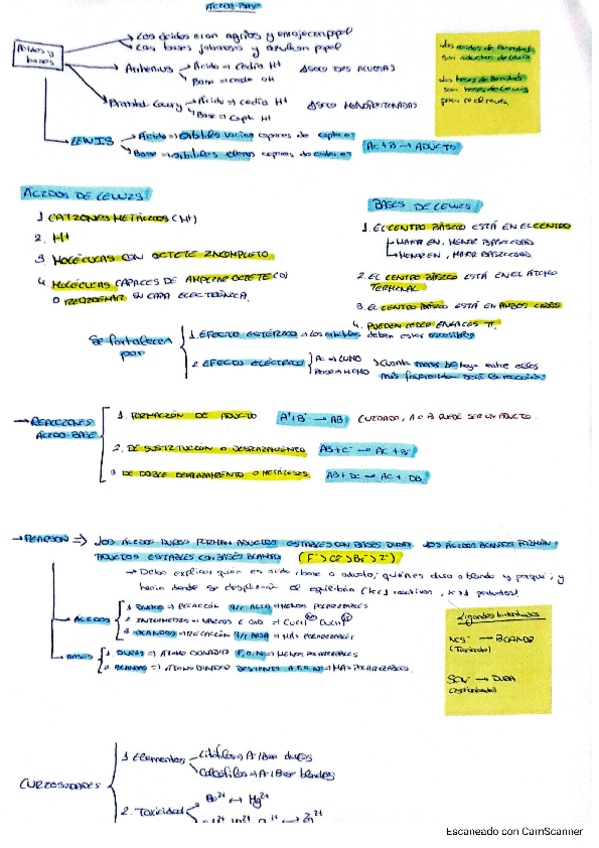 ÁCIDO-BASE
Ácidos y bases
Los ácidos eran agrios y enrojecen papel
Las bases jabonosas y azulean papel
Arrhenius
Ácido ⇒ cedía H⁺
Base ⇒ cede OH
DISOLUCIONES ACUOSAS
Brønsted-Lowry
Ácido ⇒ cedía H⁺
Base ⇒ capta H⁺
LEWIS
Ácido ⇒ orbitales vacíos capaces de captar e⁻
Base ⇒ orbitales llenos capaces de ceder e⁻
AC + B → ADUCTO
Los ácidos de Brønsted
son aductos de Lewis
Las bases de Brønsted
son bases de Lewis
ÁCIDOS DE LEWIS
1. CATIONES METÁLICOS (M⁺)
2. H⁺
3. MOLÉCULAS CON OCTETE INCOMPLETO
4. MOLÉCULAS CAPACES DE AMPLIAR OCTETE (d)
O REORDENAR SU CAPA ELECTRÓNICA.
BASES DE LEWIS
1. EL CENTRO BÁSICO ESTÁ EN EL CENTRO
MAYOR EN, MENOR BASICIDAD
MENOR EN, MAYOR BASICIDAD
2. EL CENTRO BÁSICO ESTÁ EN EL ÁTOMO
TERMINAL
3. EL CENTRO BÁSICO ESTÁ EN AMBOS LADOS
4. PUEDEN CEDER ENLACES π.
Se fortalecen por
1. EFECTO ESTÉRICO ⇒ Los orbitales deben estar accesibles
2. EFECTO ELÉCTRICO
AC → LUMO
BASE → HOMO
Cuanta más ... haya entre ellos
más favorable será la reacción
→ REACCIONES
ÁCIDO BASE
1. FORMACIÓN DE ADUCTO A⁺ + B⁻ → AB CUIDADO, A O B PUEDE SER UN ADUCTO.
2. DE SUSTITUCIÓN O DESPLAZAMIENTO AB + C⁻ → AC + B⁻
3. DE DOBLE DESPLAZAMIENTO O METÁTESIS AB + DC → AC + DB
→ PEARSON ⇒ LOS ÁCIDOS DUROS FORMAN ADUCTOS ESTABLES CON BASES DURAS. LOS ÁCIDOS BLANDOS FORMAN
ADUCTOS ESTABLES CON BASES BLANDAS (F⁻ > Cl⁻ > Br⁻ > I⁻)
→ Debes explicar quién es ácido, base o aducto; quién es dura o blando y porqué; y
hacia donde se desplaza el equilibrio (K<1 reactivos, K>1 productos).
ÁCIDOS
1. DUROS ⇒ RELACIÓN q/r ALTA ⇒ MENOS POLARIZABLES
2. INTERMEDIOS ⇒ VARIOS E.OXD ⇒ Cu(I) Cu(II)
3. BLANDOS ⇒ RELACIÓN q/r BAJA ⇒ MÁS POLARIZABLES
BASES
1. DURAS ⇒ ÁTOMO DONADOR F, O, N ⇒ MENOS POLARIZABLES
2. BLANDAS ⇒ ÁTOMO DONADOR DISTINTO A F, O, N ⇒ MÁS POLARIZABLES.
Ligandos
NCS⁻ → BLANDO
(Tiocianato)
SCN⁻ → DURA
CURIOSIDADES
1. Elementos
Litófilos ⇒ A/Base duros
Calcófilos ⇒ A/Base blandos
2. Toxicidad
Hg²⁺
Escaneado con CamScanner